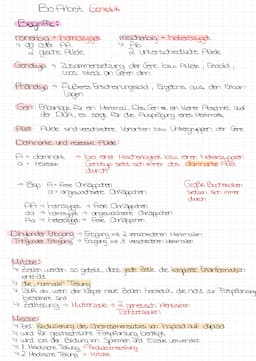 Bio Arbeit Genetik
Begriffe:
reinerbig = homozygot
mischerbig = heterozygot
↳ aa oder AA
↳ Aa
↳ 2 gleiche Allele
↳ 2 unterschiedliche Allele
Genotyp → Zusammensetzung der Gene bzw. Allele, Erbbild,
was steckt an Genen drin
Phänotyp → Äußeres Erscheinungsbild, Ergebnis aus den
Gen: Erbanlage für ein Merkmal. Das Gen ist ein kleiner Abschnitt auf
der DNA, es sagt für die Ausprägung eines Merkmals
Allel: Allele sind verschiedene Varianten bzw. der Gene
Dominante und rezessive Allele:
A = dominant
a = rezessiv
→ bei einer Mischerbigkeit bzw. einem heterozygoten
Genotyp setzt sich immer das dominante Allel
durch!
→ Bsp: A = freie Ohrläppchen
a = angewachsene Ohrläppchen
Große Buchstaben
setzen sich immer
durch
AA = homozygot → freie Ohrläppchen
aa = homozygot → angewachsene Ohrläppchen
Aa = heterozygot → freie Ohrläppchen
Dihybrider Erbgang → Erbgang mit 2 verschiedenen Merkmalen
Trihybrider Erbgang → Erbgang mit 3 verschiedenen Merkmalen
Mitose:
→ Zellen werden so geteilt, dass jede Zelle die komplette Erbinformation
enthält
→ die "normale" Teilung
→ läuft ab, wenn der Körper neue Zellen herstellt, die nicht zur Fortpflanzung
bestimmt sind
→ Zellteilung → Mutterzelle → 2 genetisch identische
Tochterzellen
Meiose:
→ Ziel: Reduzierung des Chromosomensatzes von
→ wird für die geschlechtliche Fortpflanzung benötigt
→ wird bei der Bildung von Spermien und Eizelle verwendet
→ 1. Meiotische Teilung → Reduktionsteilung
→ 2. Meiotische Teilung → Mitose